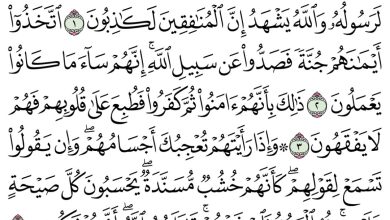 لَرَسُولُهُۥ وَٱللَّهُ يَشْهَدُ إِنَّ ٱلْمُنَٰفِقِينَ لَكَٰذِبُونَ ١ ٱتَّخَذُوٓا۟
أَيْمَٰنَهُمْ جُنَّةً فَصَدُّوا۟ عَن سَبِيلِ ٱللَّهِ ۚ إِنَّهُمْ سَآءَ مَا كَانُوا۟
يَعْمَلُونَ ٢ ذَٰلِكَ بِأَنَّهُمْ ءَامَنُوا۟ ثُمَّ كَفَرُوا۟ فَطُبِعَ عَلَىٰ قُلُوبِهِمْ فَهُمْ
لَا يَفْقَهُونَ ٣ ۞ وَإِذَا رَأَيْتَهُمْ تُعْجِبُكَ أَجْسَامُهُمْ ۖ وَإِن يَقُولُوا۟
تَسْمَعْ لِقَوْلِهِمْ ۖ كَأَنَّهُمْ خُشُبٌ مُّسَنَّدَةٌ ۖ يَحْسَبُونَ كُلَّ صَيْحَةٍ